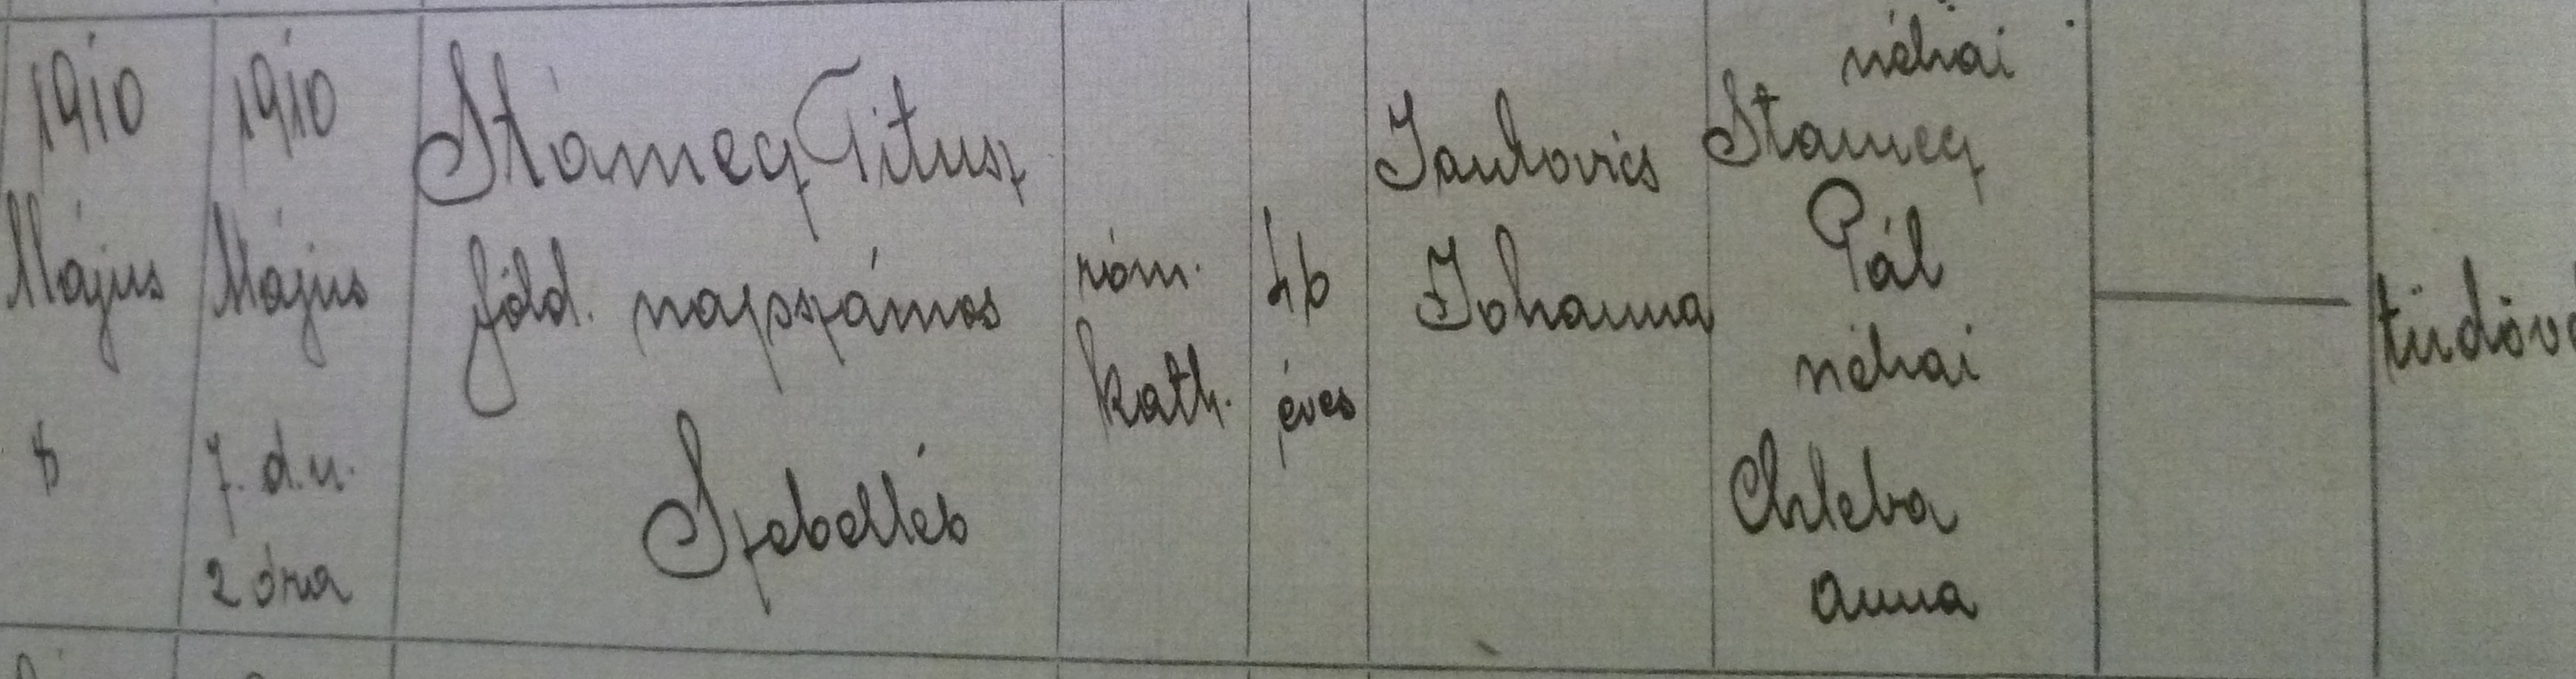 1910
Május
8
1910
Május
7. d.u.
2 óra
Stámecz Titusz
föld. napszámos
Szebelléb
róm.
kath.
46
éves
Jankovics
Johanna
néhai
Stamecz
Pál
néhai
Chleba
Anna